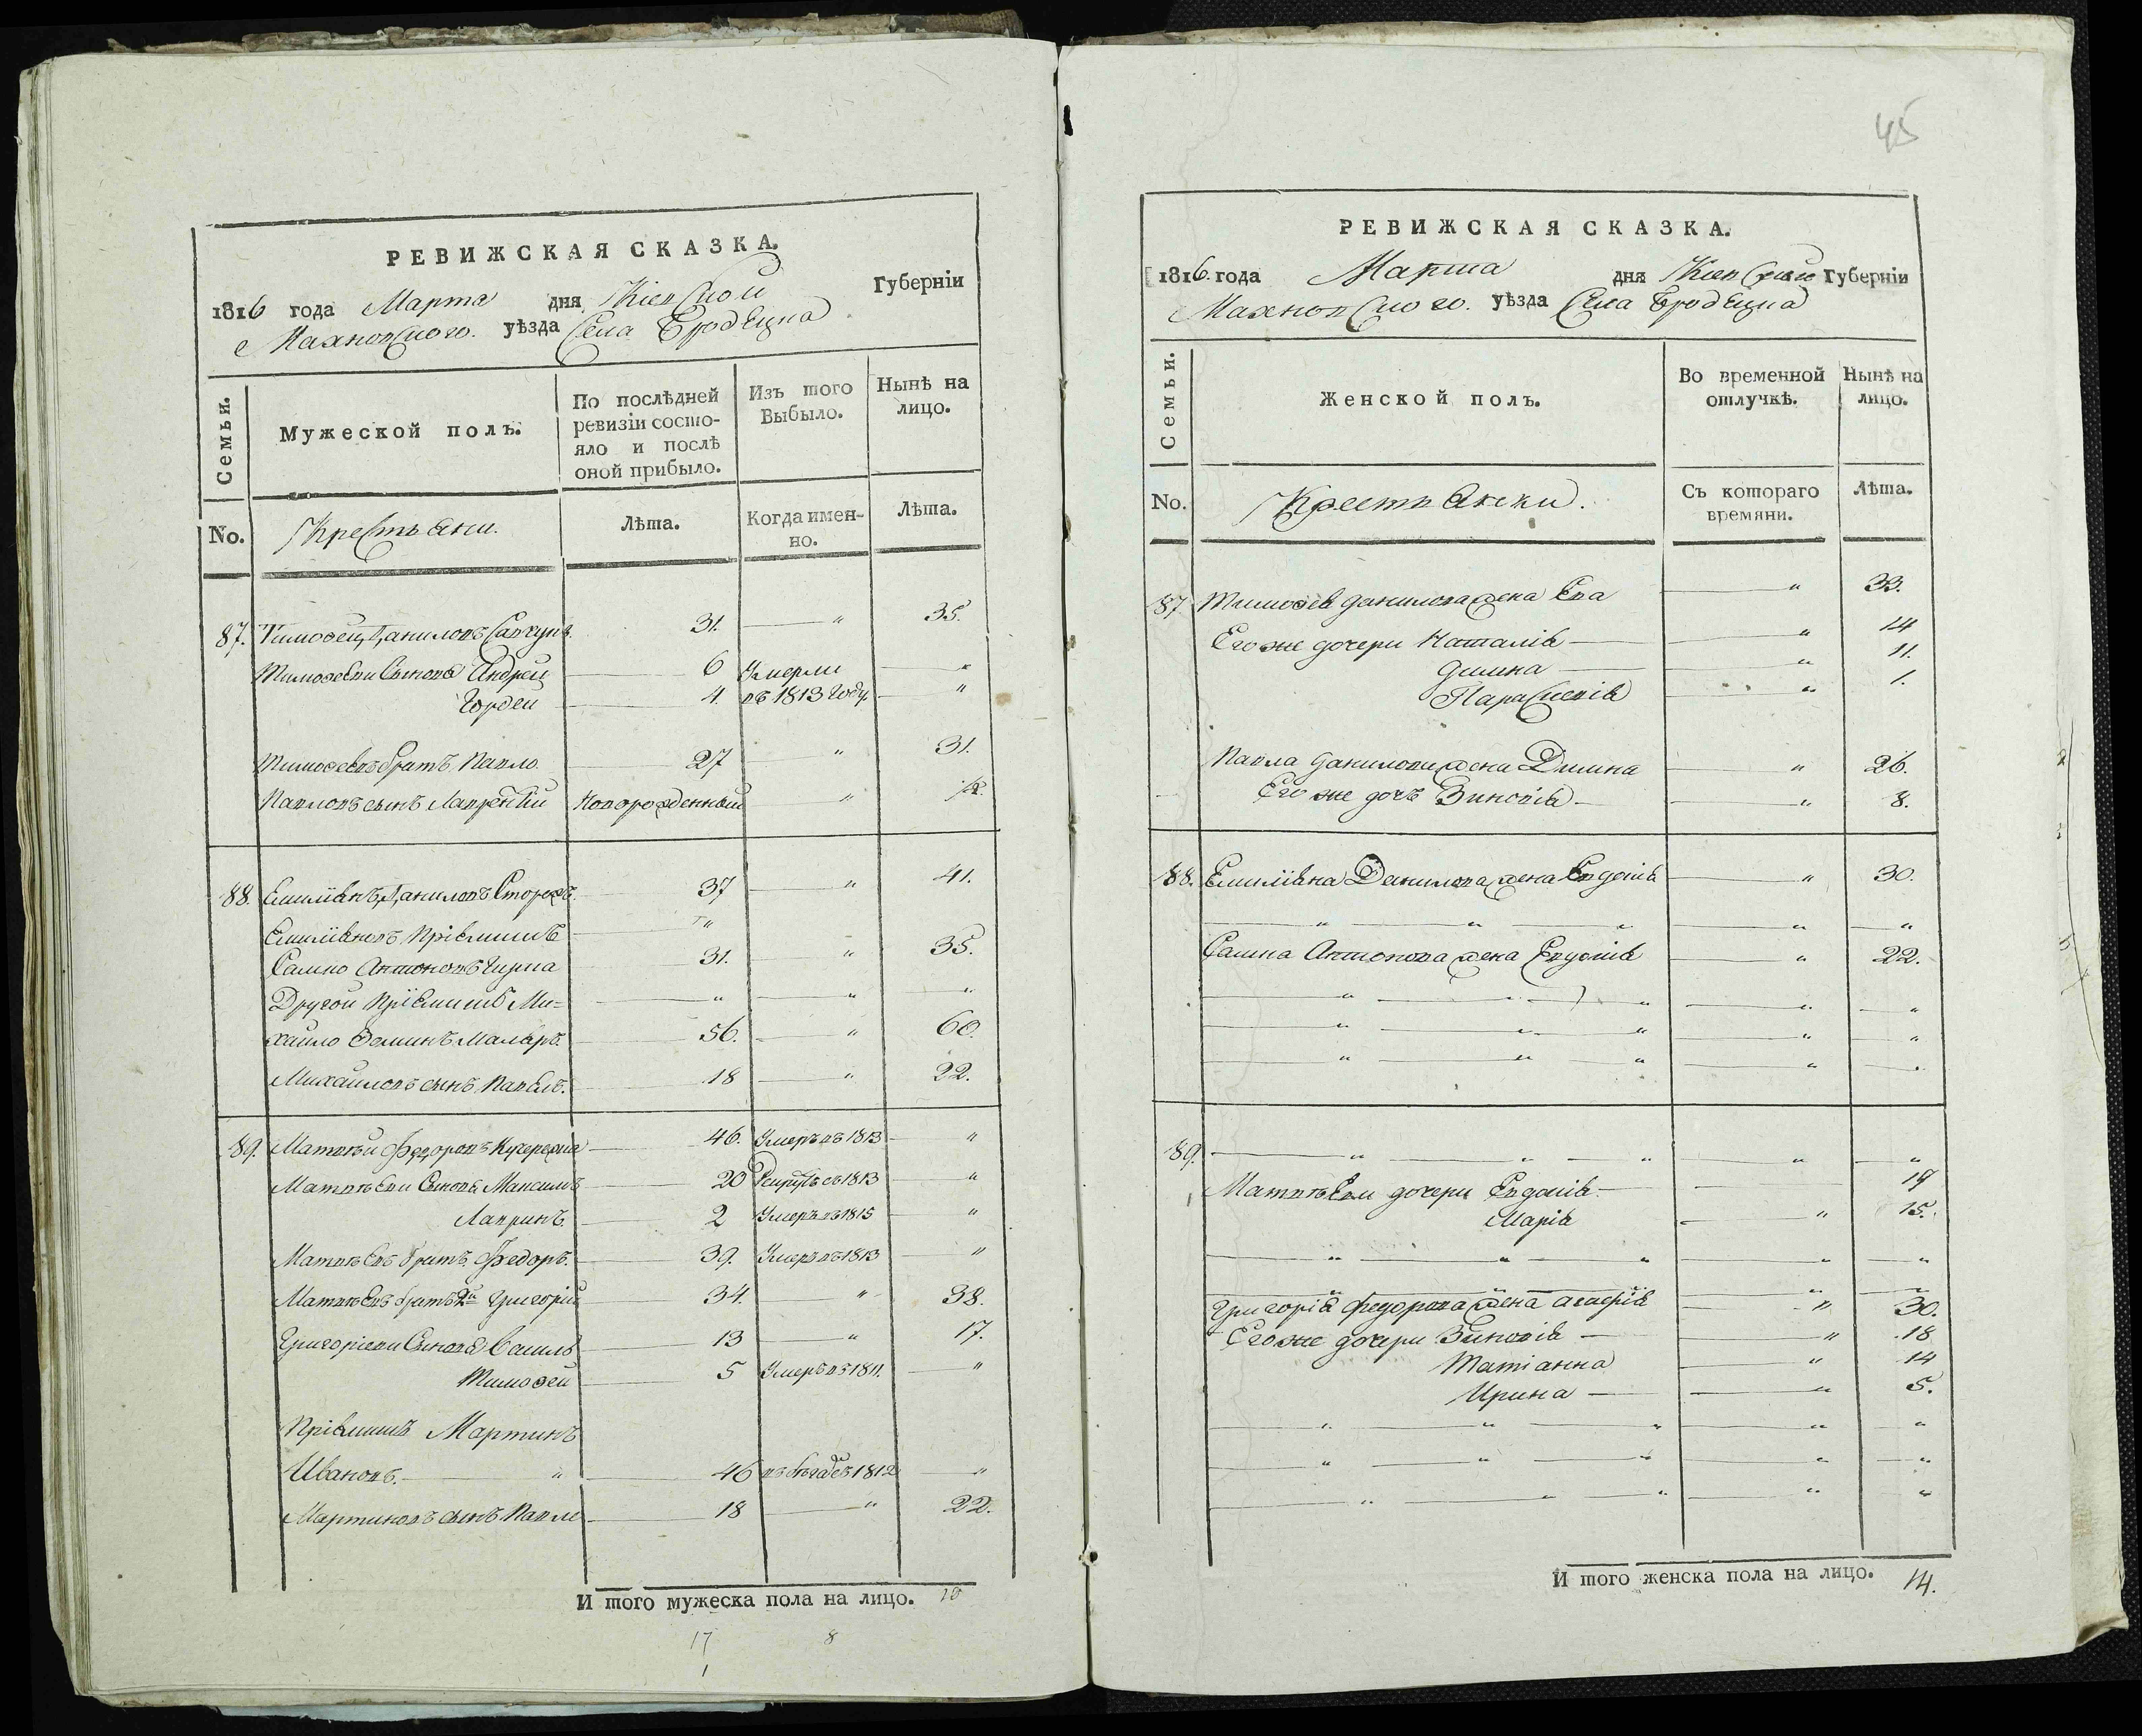 РЕВИЖСКАЯ СКАЗКА.
1816 года Марта дня Кіевской Губерніи
Махновского. уѣзда Села Бродецка
Семьи.
Мужеской полъ.
По послѣдней ревизіи состояло и послѣ оной прибыло.
Изъ того Выбыло.
Нынѣ на лицо.
No.
Крестьяни.
Лѣта.
Когда именно.
Лѣта.
87. Тимофей Даниловъ 31. — " 35.
Тимофееви Синовя Андрей — 6 Умерли — "
Гордей — 4. въ 1813 году — "
Тимофеевъ братъ Павло — 27 " 31.
Павловъ сынъ Лаврентій Новорожденный "
88. Емиліянъ Даниловъ Сторожъ. 37 — " 41.
Емиліяновъ Пріемишъ — "
Самко Антоновъ 31. " 35.
Другой Пріемишъ Ми=
хайло Маляръ. — 56. — " 60.
Михайловъ сынъ Павелъ. — 18 — " 22.
89. Матвѣй Федоровъ — 46. Умеръ въ 1813 — "
Матвѣеви Синовя Максимъ — 20 Рекрутъ съ 1813 — "
Лавринъ — 2 Умеръ въ 1815 — "
Матвѣевъ братъ Федоръ. — 39. Умеръ въ 1813 "
Матвѣевъ братъ 2й Григорій — 34. — " 38.
Григоріеви Синовя Василь — 13 — " 17.
Тимофей — 5 Умеръ въ 1811. — "
Пріемишъ Мартинъ
Ивановъ. — " — 46 въ 1812 — "
Мартиновъ сынъ Павле — 18 — " 22.
И того мужеска пола на лицо. 10
17 8
1
45
РЕВИЖСКАЯ СКАЗКА.
1816. года Марта дня Кіевской Губерніи
Махновского. уѣзда Села Бродецка
Семьи.
Женской полъ.
Во временной отлучкѣ.
Нынѣ на лицо.
No.
Крестьянки.
Съ котораго времяни.
Лѣта.
87 Тимофея Данилова жена Ева — " 33.
Его же дочери Наталія — " 14
Димна — " 11.
Параскевія — " 1.
Павла Данилови жена Димна — " 26.
Его же дочъ Зиновія — " 8.
88. Емиліяна Данилова жена Евдокія — " 30.
— " — " — " — " — "
Самка Антонова жена Евдокія — " 22.
— " — " — " — " — "
— " — " — " — " — "
— " — " — " — " — "
89. — " — " — " — " — "
Матвѣеви дочери Евдокія — 19
Марія — " 15.
— " — " — " — " — "
Григорія Федорова жена Агафія — " 30.
Его же дочери Зиновія — " 18
Татіанна — " 14
Ирина — " 5.
— " — " — " — " — "
— " — " — " — " — "
— " — " — " — " — "
И того женска пола на лицо. 14.